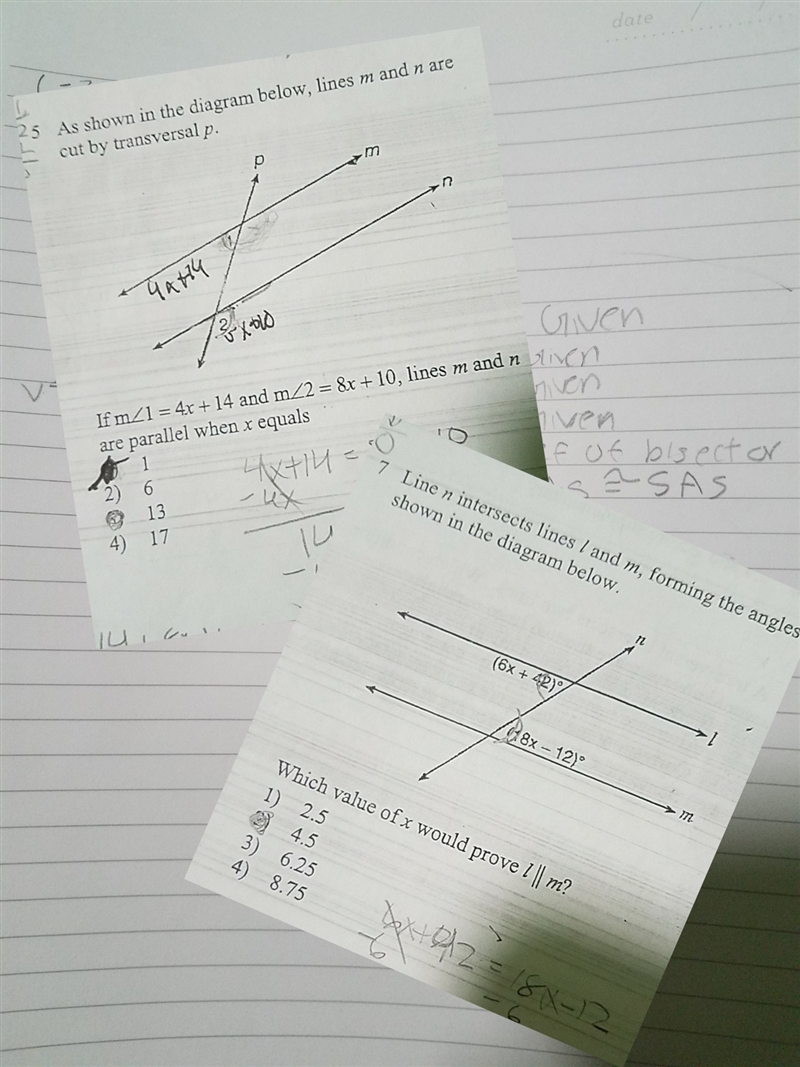 date / /
25 As shown in the diagram below, lines m and n are
cut by transversal p.
p
m
n
1
4x+14
2
If m∠1 = 4x + 14 and m∠2 = 8x + 10, lines m and n
are parallel when x equals
1
2) 6
13
4) 17
4x+14 =
-4x
14
Given
Given
Given
Given
of bisector
≅ SAS
7 Line n intersects lines l and m, forming the angles
shown in the diagram below.
n
(6x + 42)°
l
(18x − 12)°
m
Which value of x would prove l || m?
1) 2.5
4.5
3) 6.25
4) 8.75
6x+42 = 18x-12
-6
-6